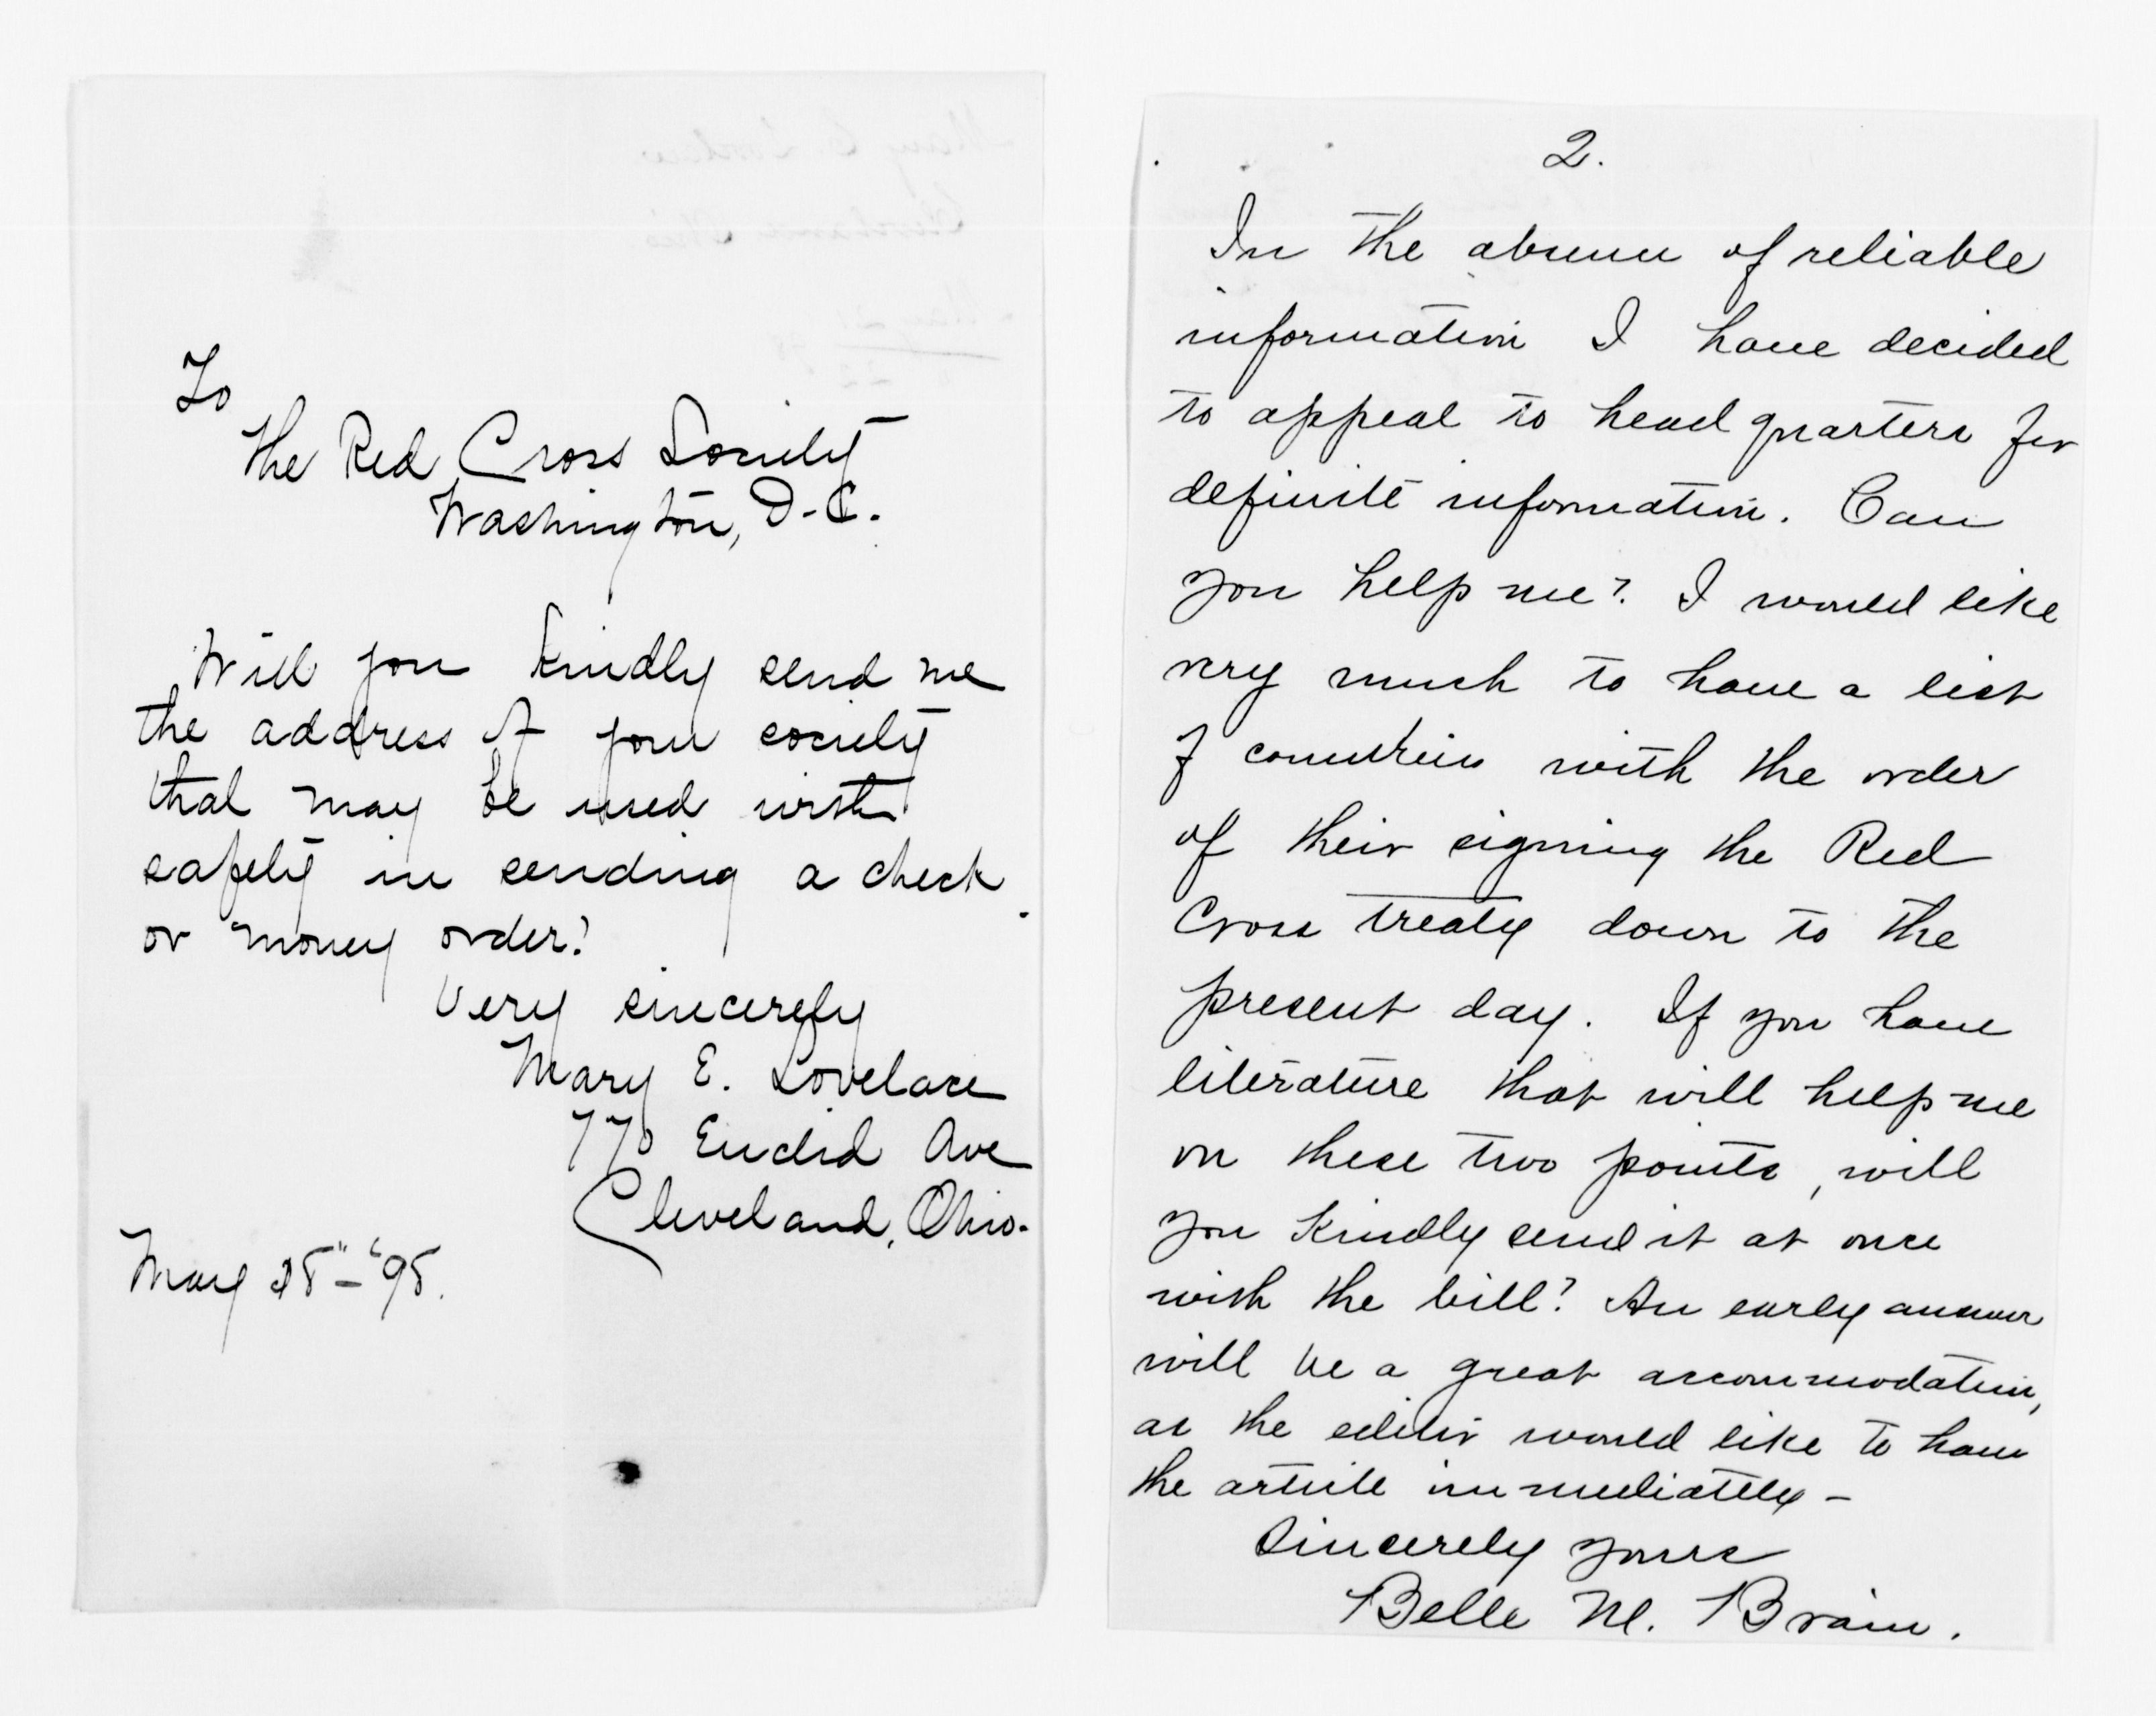 To
The Red Cross Society
Washington, D.C.
Will you kindly send me
the address of your society
that may be used with
safety in sending a check
or money order?
Very sincerely
Mary E. Lovelace
770 Euclid Ave
Cleveland, Ohio.
May - '98.
2.
In the absence of reliable
information I have decided
to appeal to head quarters for
definite information. Can
you help me? I would like
very much to have a list
of countries with the order
of their signing the Red
Cross treaty down to the
present day. If you have
literature that will help me
on these two points, will
you kindly send it at once
with the bill? An early answer
will be a great accommodation,
as the editor would like to have
the article immediately -
Sincerely yours
Belle M. Brain.